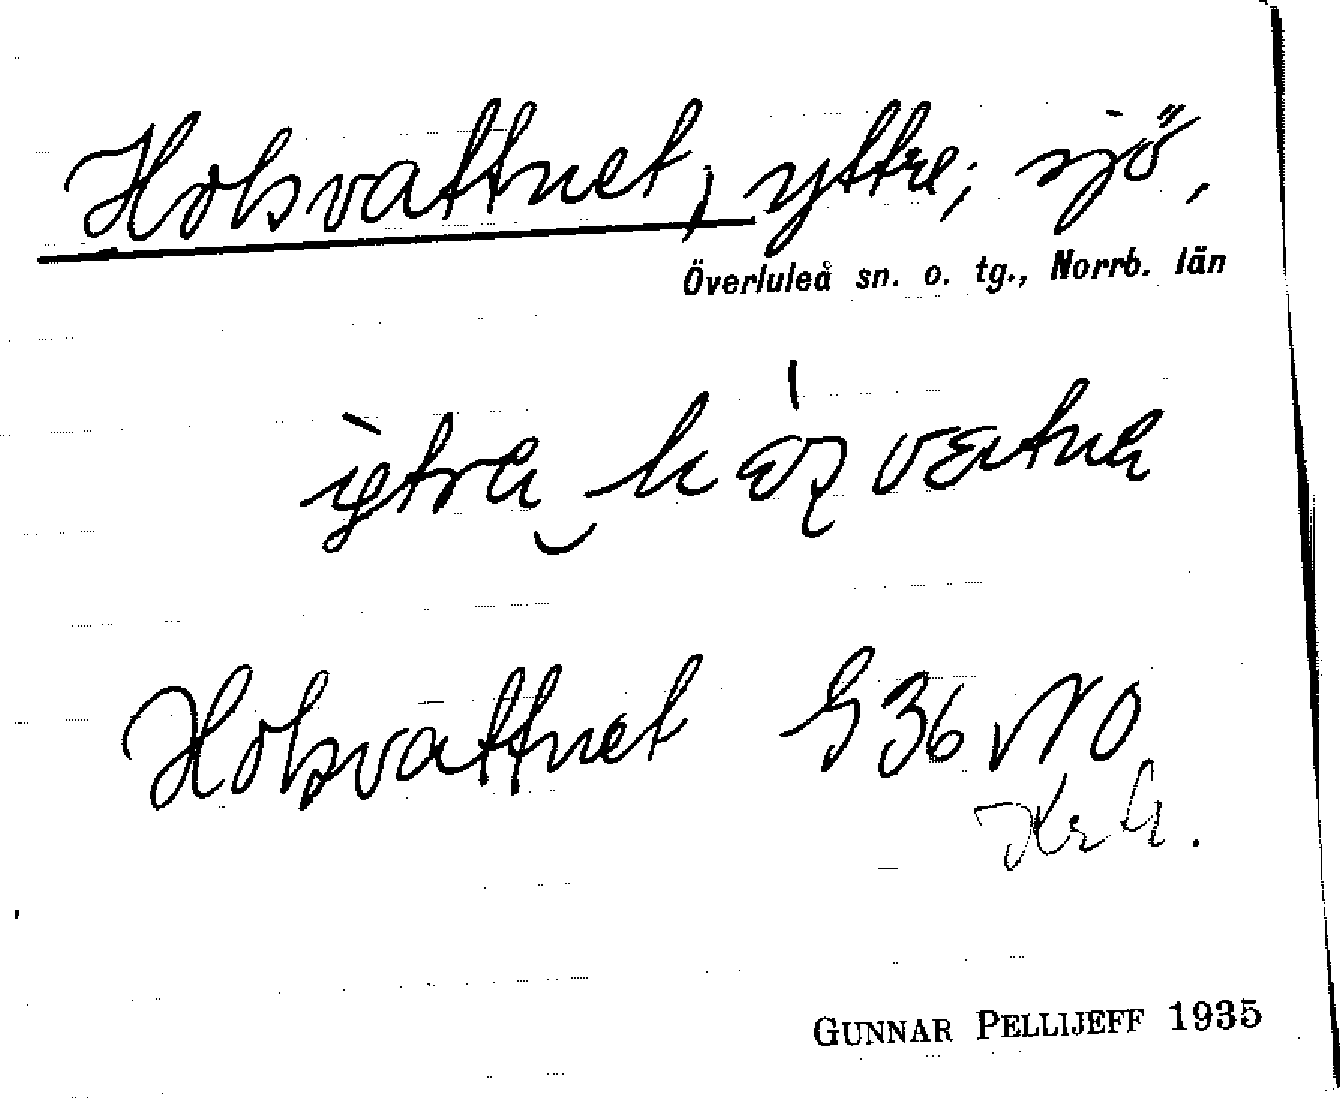 Holsvattnet, yttre; sjö,
Överluleå sn. o. tg., Norrb. län
Holsvattnet G 36 NO
GUNNAR PELLIJEFF 1935